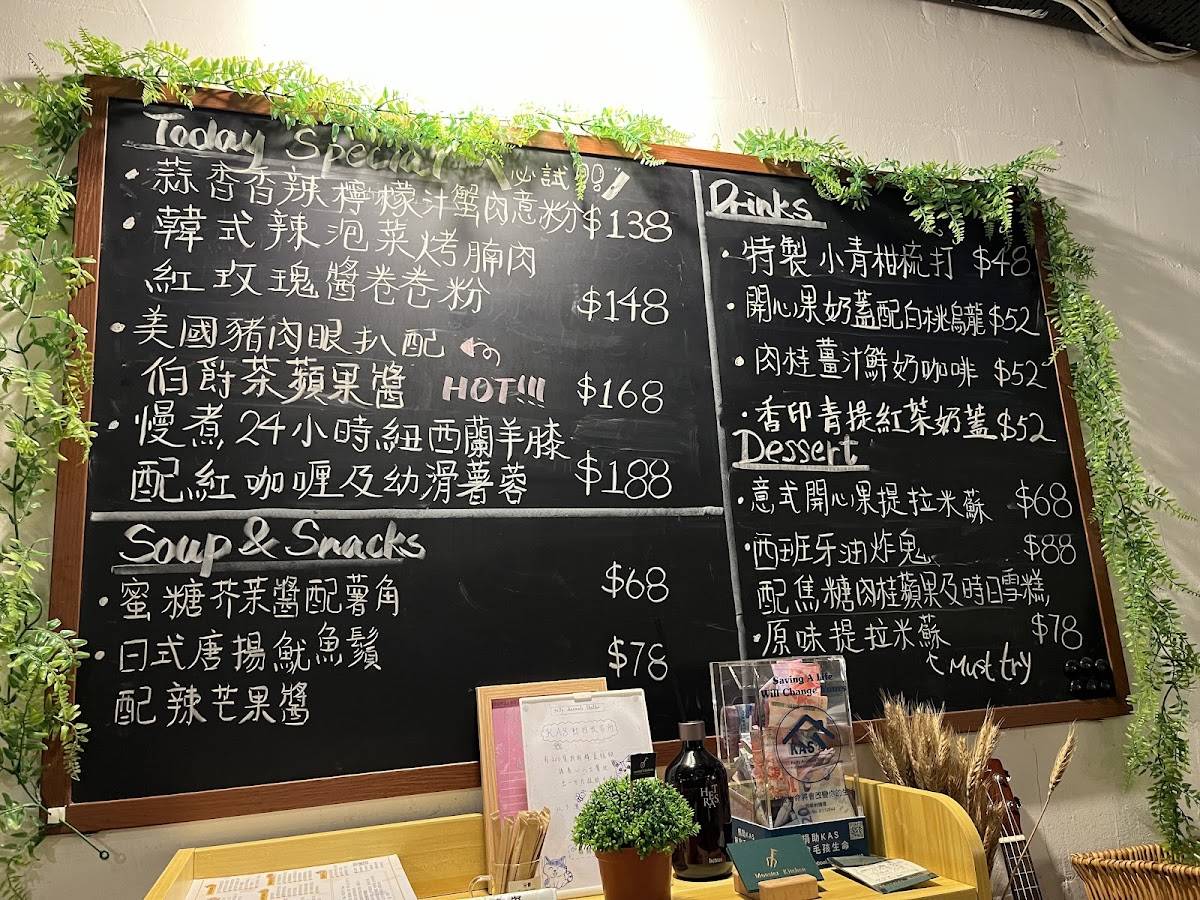 Today Special
必試!!
• 蒜香香辣檸檬汁蟹肉意粉 $138
• 韓式辣泡菜烤腩肉
紅玫瑰醬卷卷粉 $148
• 美國豬肉眼扒配
伯爵茶蘋果醬 HOT!!! $168
• 慢煮24小時紐西蘭羊膝
配紅咖喱及幼滑薯蓉 $188
Soup & Snacks
• 蜜糖芥茉醬配薯角 $68
• 日式唐揚魷魚鬚 $78
配辣芒果醬
Drinks
• 特製小青柑梳打 $48
• 開心果奶蓋配白桃烏龍 $52
• 肉桂薑汁鮮奶咖啡 $52
• 香印青提紅茶奶蓋 $52
Dessert
• 意式開心果提拉米蘇 $68
• 西班牙油炸鬼 $88
配焦糖肉桂蘋果及時日雪糕
• 原味提拉米蘇 $78
Must try
Saving A Life
Will Change Yours
KAS
捐助KAS
毛孩生命